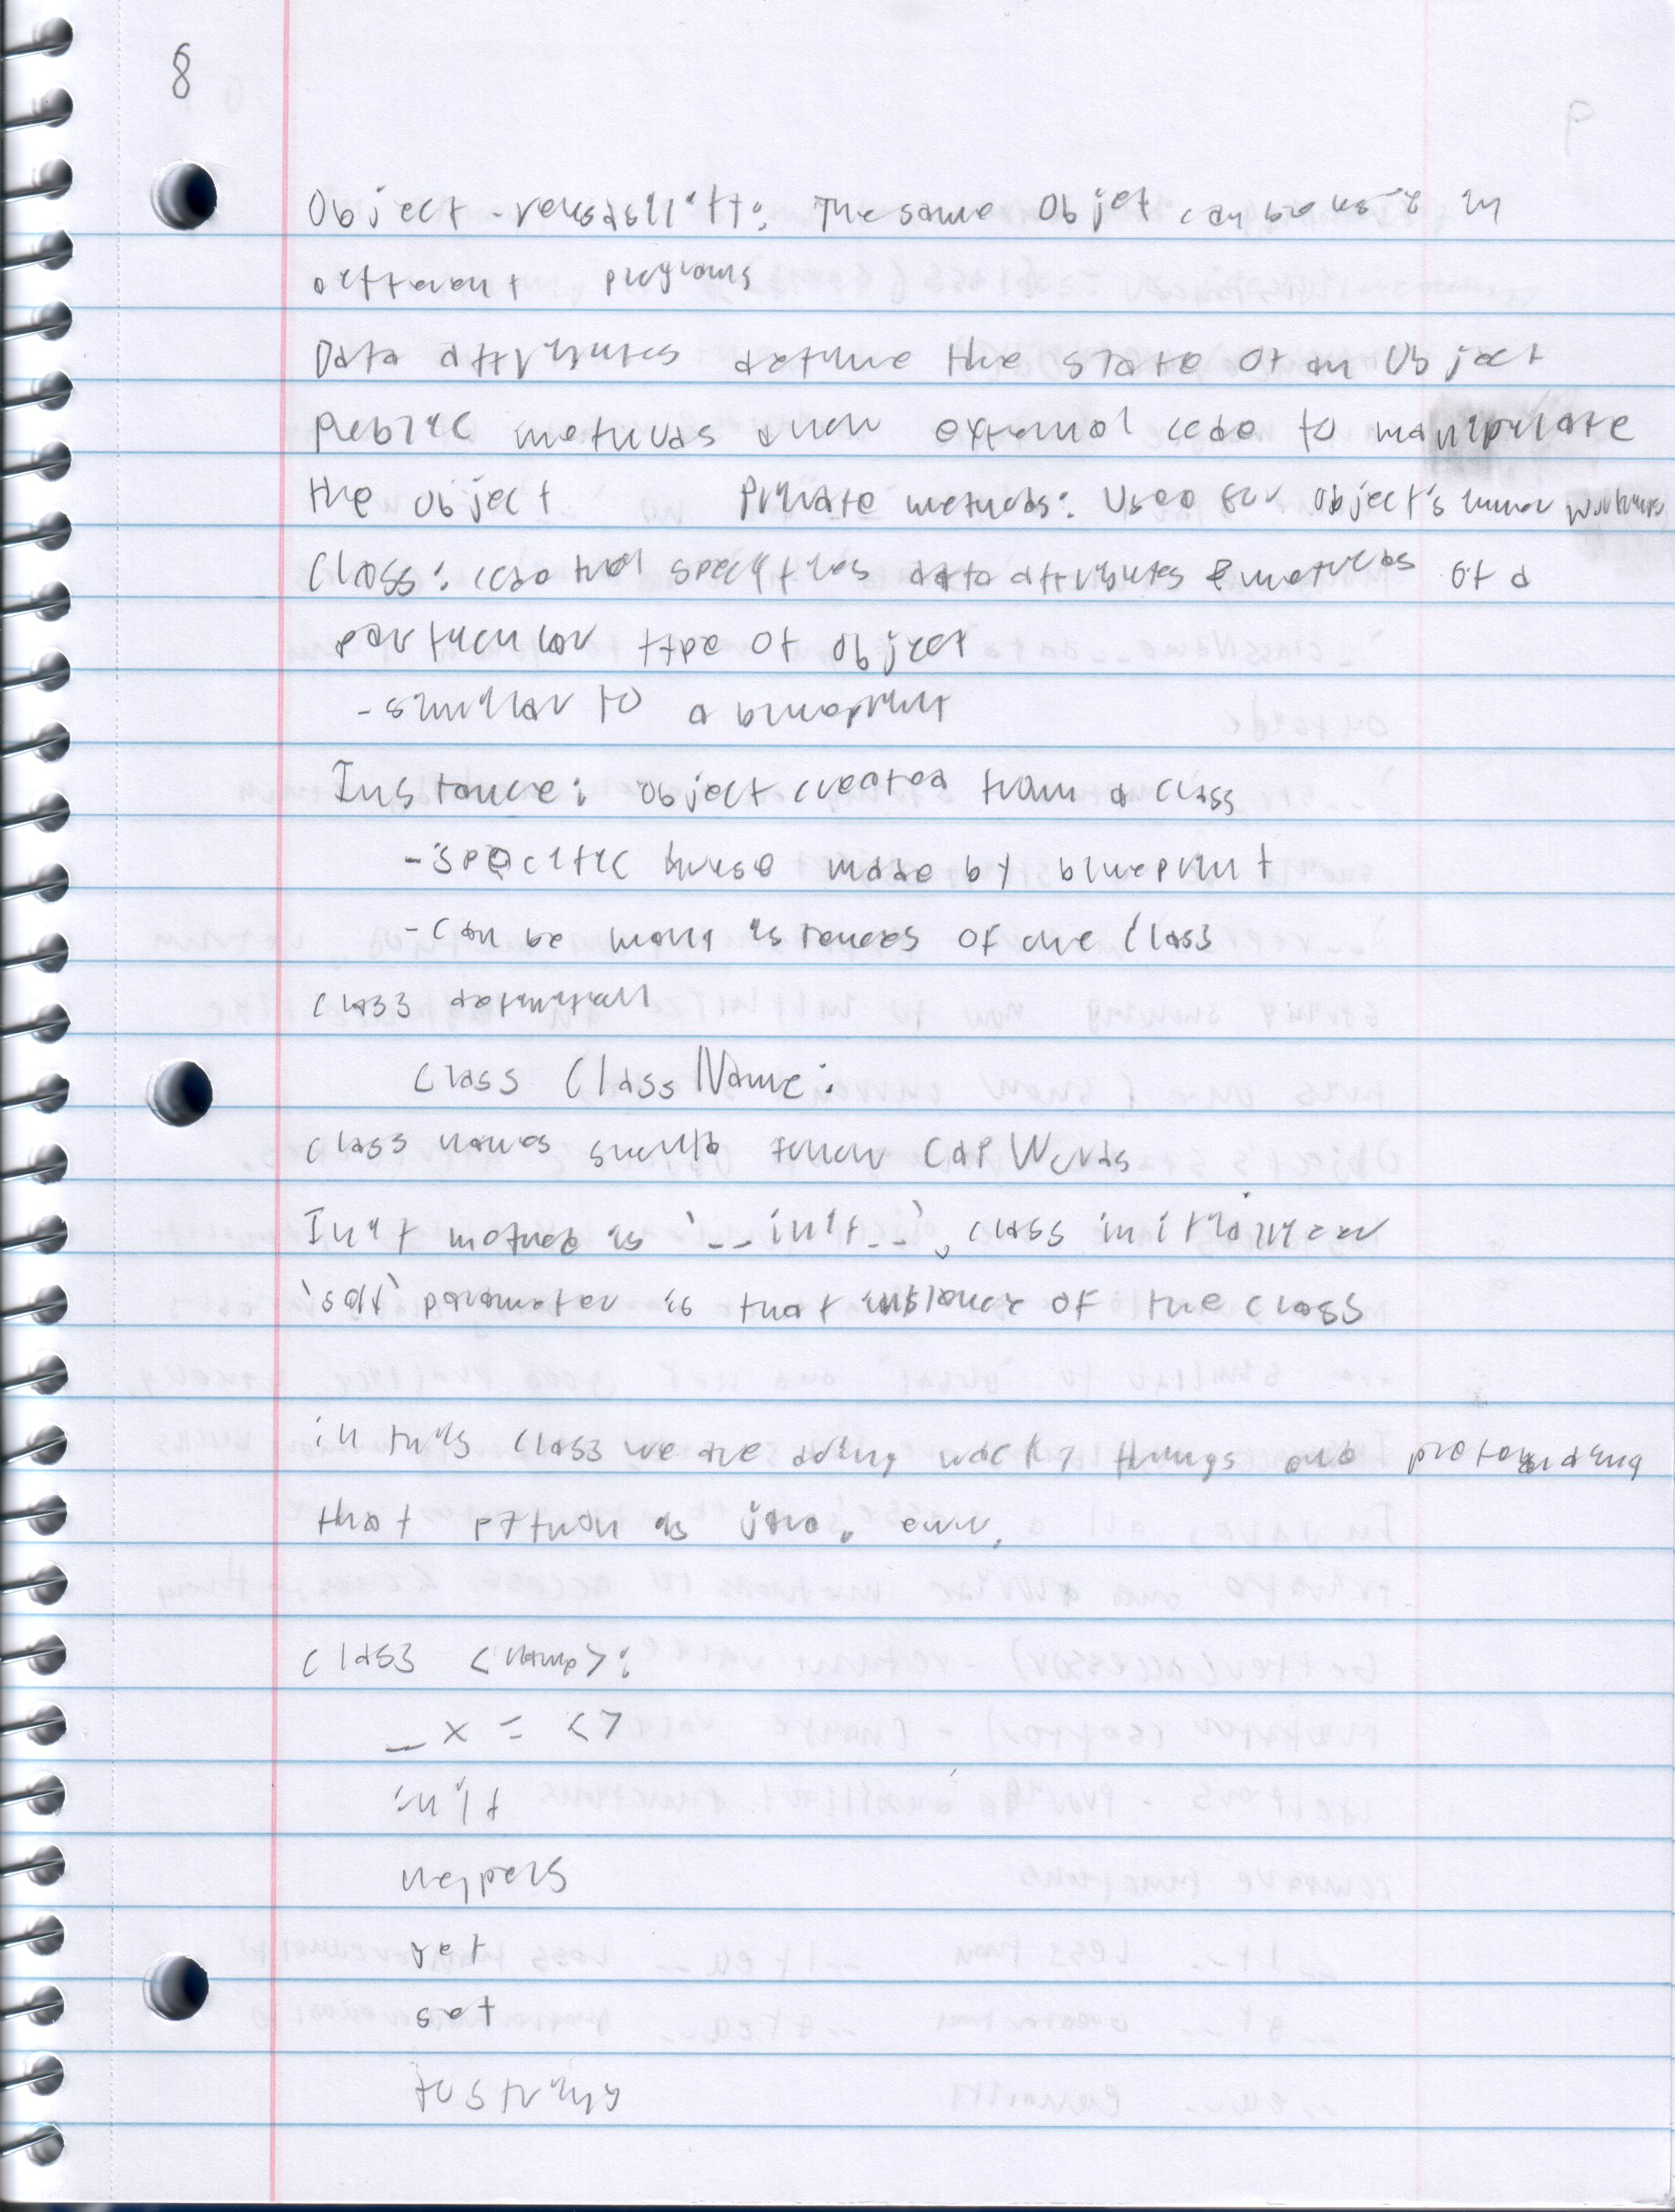 8
Object-reusability: The same object can be used in
different programs
Data attributes define the state of an object
Public methods allow external code to manipulate
the object Private methods: Used for object's inner workings
Class: code that specifies data attributes & methods of a
particular type of object
- similar to a blueprint
Instance: object created from a class
- specific house made by blueprint
- Can be many istances of one class
class definition
class ClassName:
class names should follow CapWords
Init method is `__init__`, class initializer
`self` parameter is that instance of the class
in this class we are doing wacky things and pretending
that python is java. eww.
class <name>:
_x = <>
init
helpers
get
set
tostring